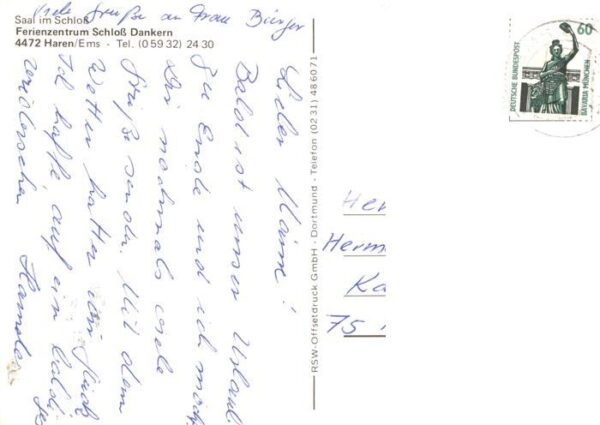 Viele Grüße an Frau Bürger
Saal im Schloß
Ferienzentrum Schloß Dankern
4472 Haren/Ems - Tel. (0 59 32) 24 30
Lieber
Bald ist unser Urlaub
zu Ende und ich möch
Dir nochmals viele
Grüße senden. Mit dem
Wetter hatten wir Glück
Ich hoffe, auf ein baldi ges
Wiedersehen
RSW-Offsetdruck GmbH · Dortmund · Telefon (02 31) 48 60 71
60
DEUTSCHE BUNDESPOST
BAVARIA MÜNCHEN
He
Herm
Ka
75